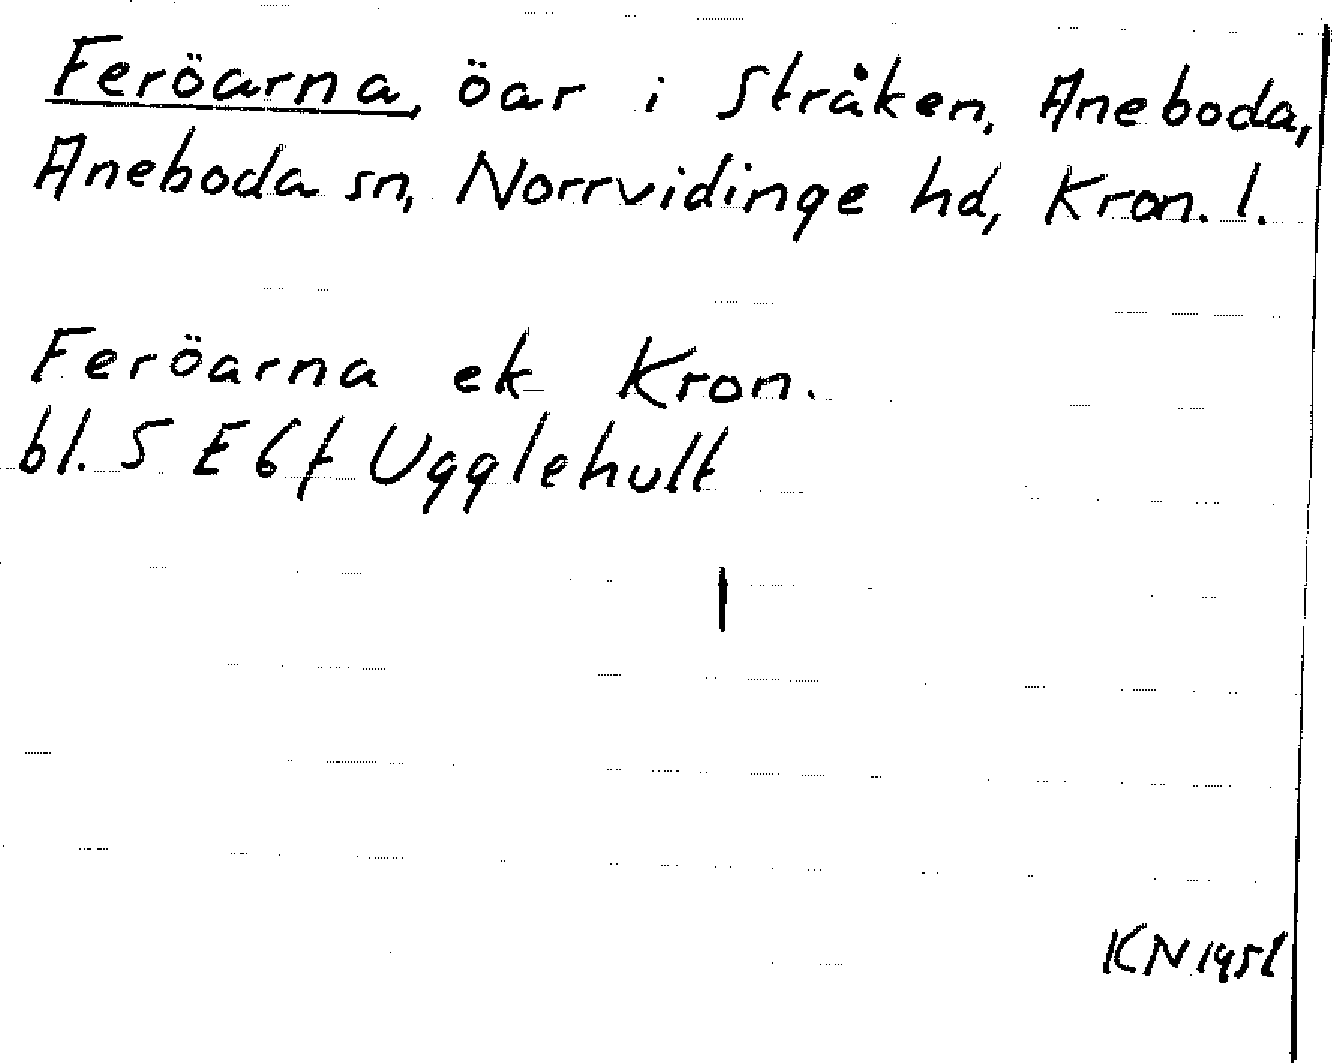 Feröarna, öar i Stråken, Aneboda,
Aneboda sn, Norrvidinge hd, Kron. l.
Feröarna ek Kron.
bl. 5 E 6 f Ugglehult
KN 1951